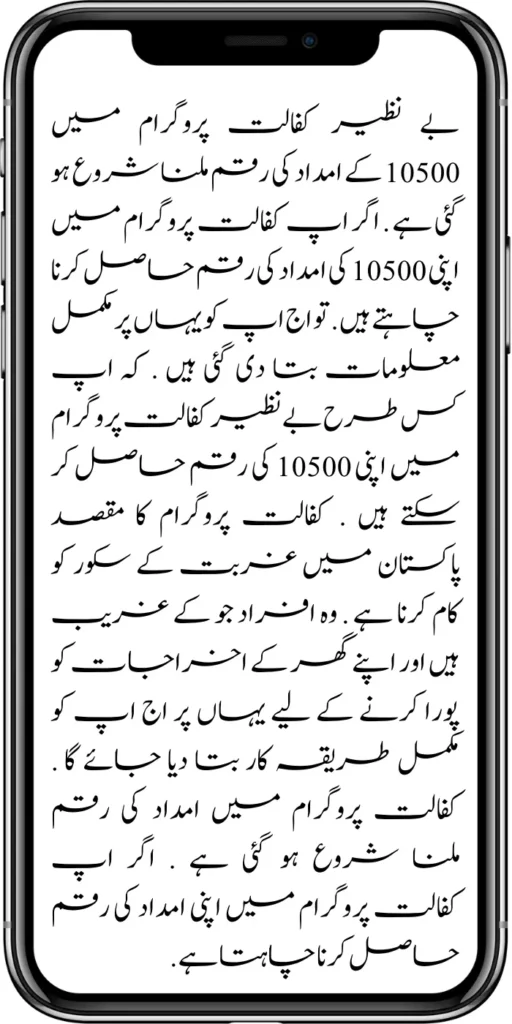 بے نظیر کفالت پروگرام میں
10500 کے امداد کی رقم ملنا شروع ہو
گئی ہے. اگر اپ کفالت پروگرام میں
اپنی 10500 کی امداد کی رقم حاصل کرنا
چاہتے ہیں. تو اج اپ کو یہاں پر مکمل
معلومات بتا دی گئی ہیں . کہ اپ
کس طرح بے نظیر کفالت پروگرام
میں اپنی 10500 کی رقم حاصل کر
سکتے ہیں . کفالت پروگرام کا مقصد
پاکستان میں غربت کے سکور کو
کام کرنا ہے . وہ افراد جو کے غریب
ہیں اور اپنے گھر کے اخراجات کو
پورا کرنے کے لیے یہاں پر اج اپ کو
مکمل طریقہ کار بتا دیا جائے گا .
کفالت پروگرام میں امداد کی رقم
ملنا شروع ہو گئی ہے . اگر اپ
کفالت پروگرام میں اپنی امداد کی رقم
حاصل کرنا چاہتا ہے.